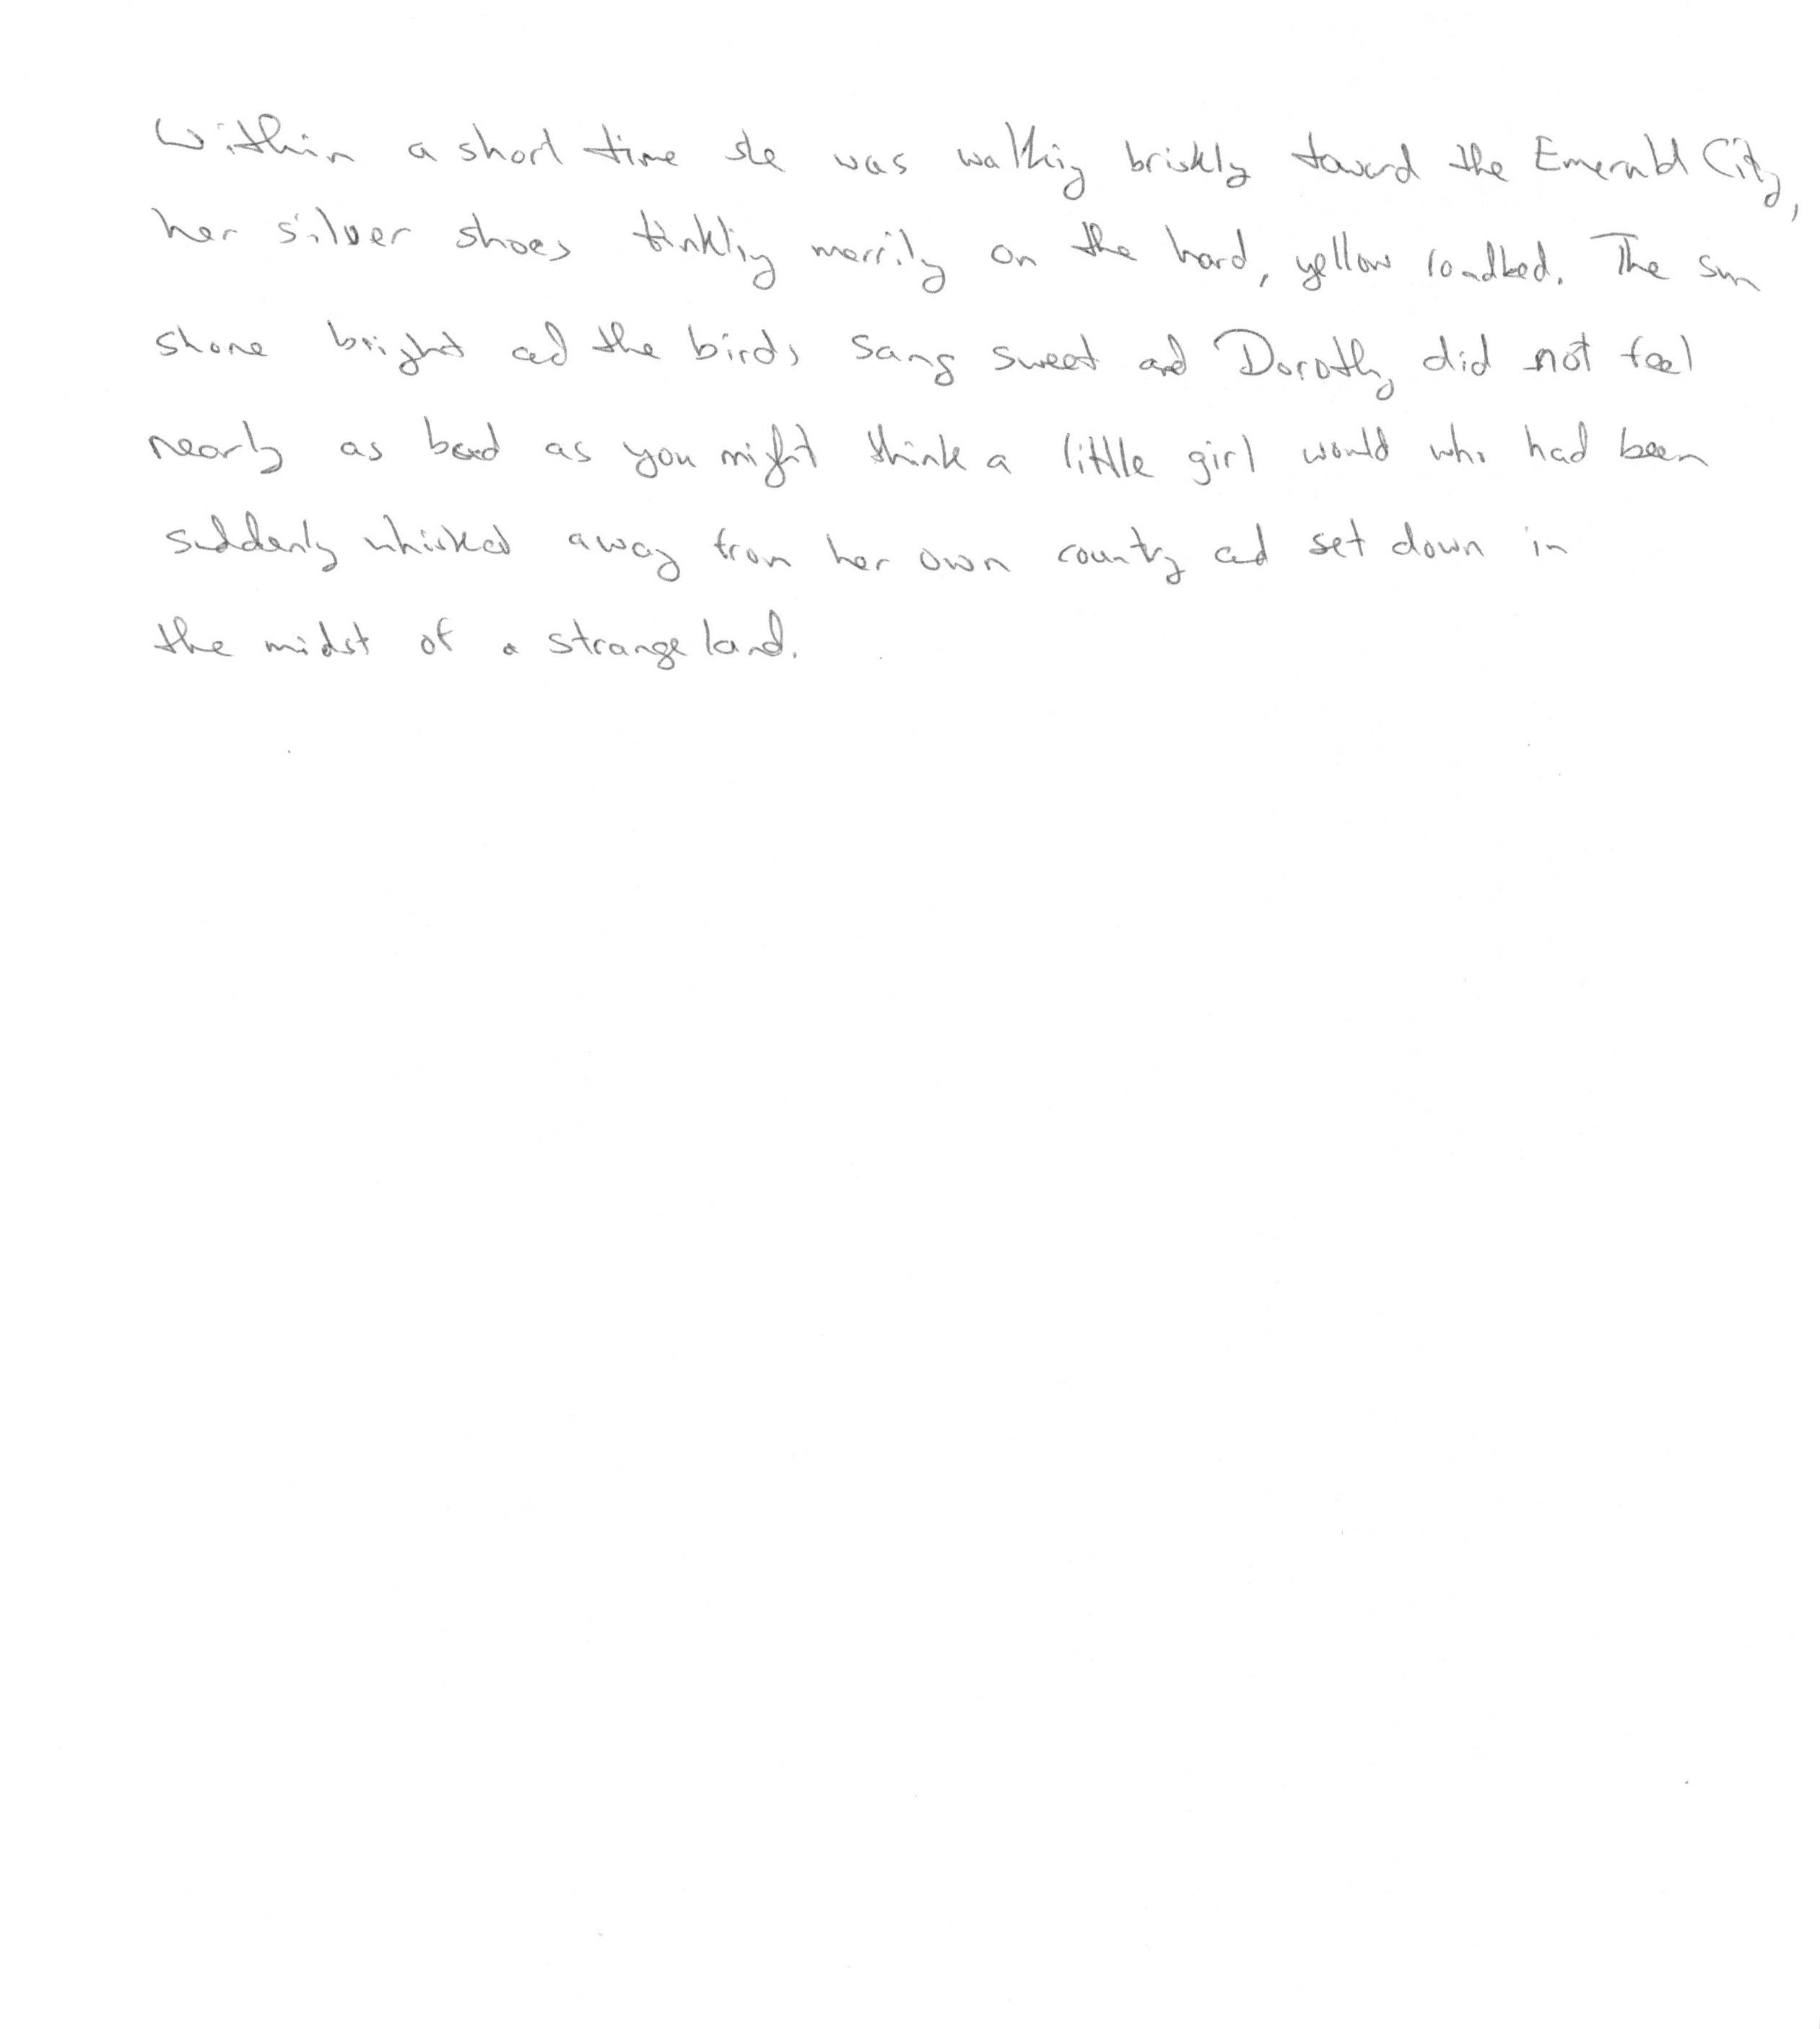 Within a short time she was walking briskly toward the Emerald City,
her silver shoes tinkling merrily on the hard, yellow roadbed. The sun
shone bright and the birds sang sweet and Dorothy did not feel
nearly as bad as you might think a little girl would who had been
suddenly whisked away from her own country and set down in
the midst of a strange land.